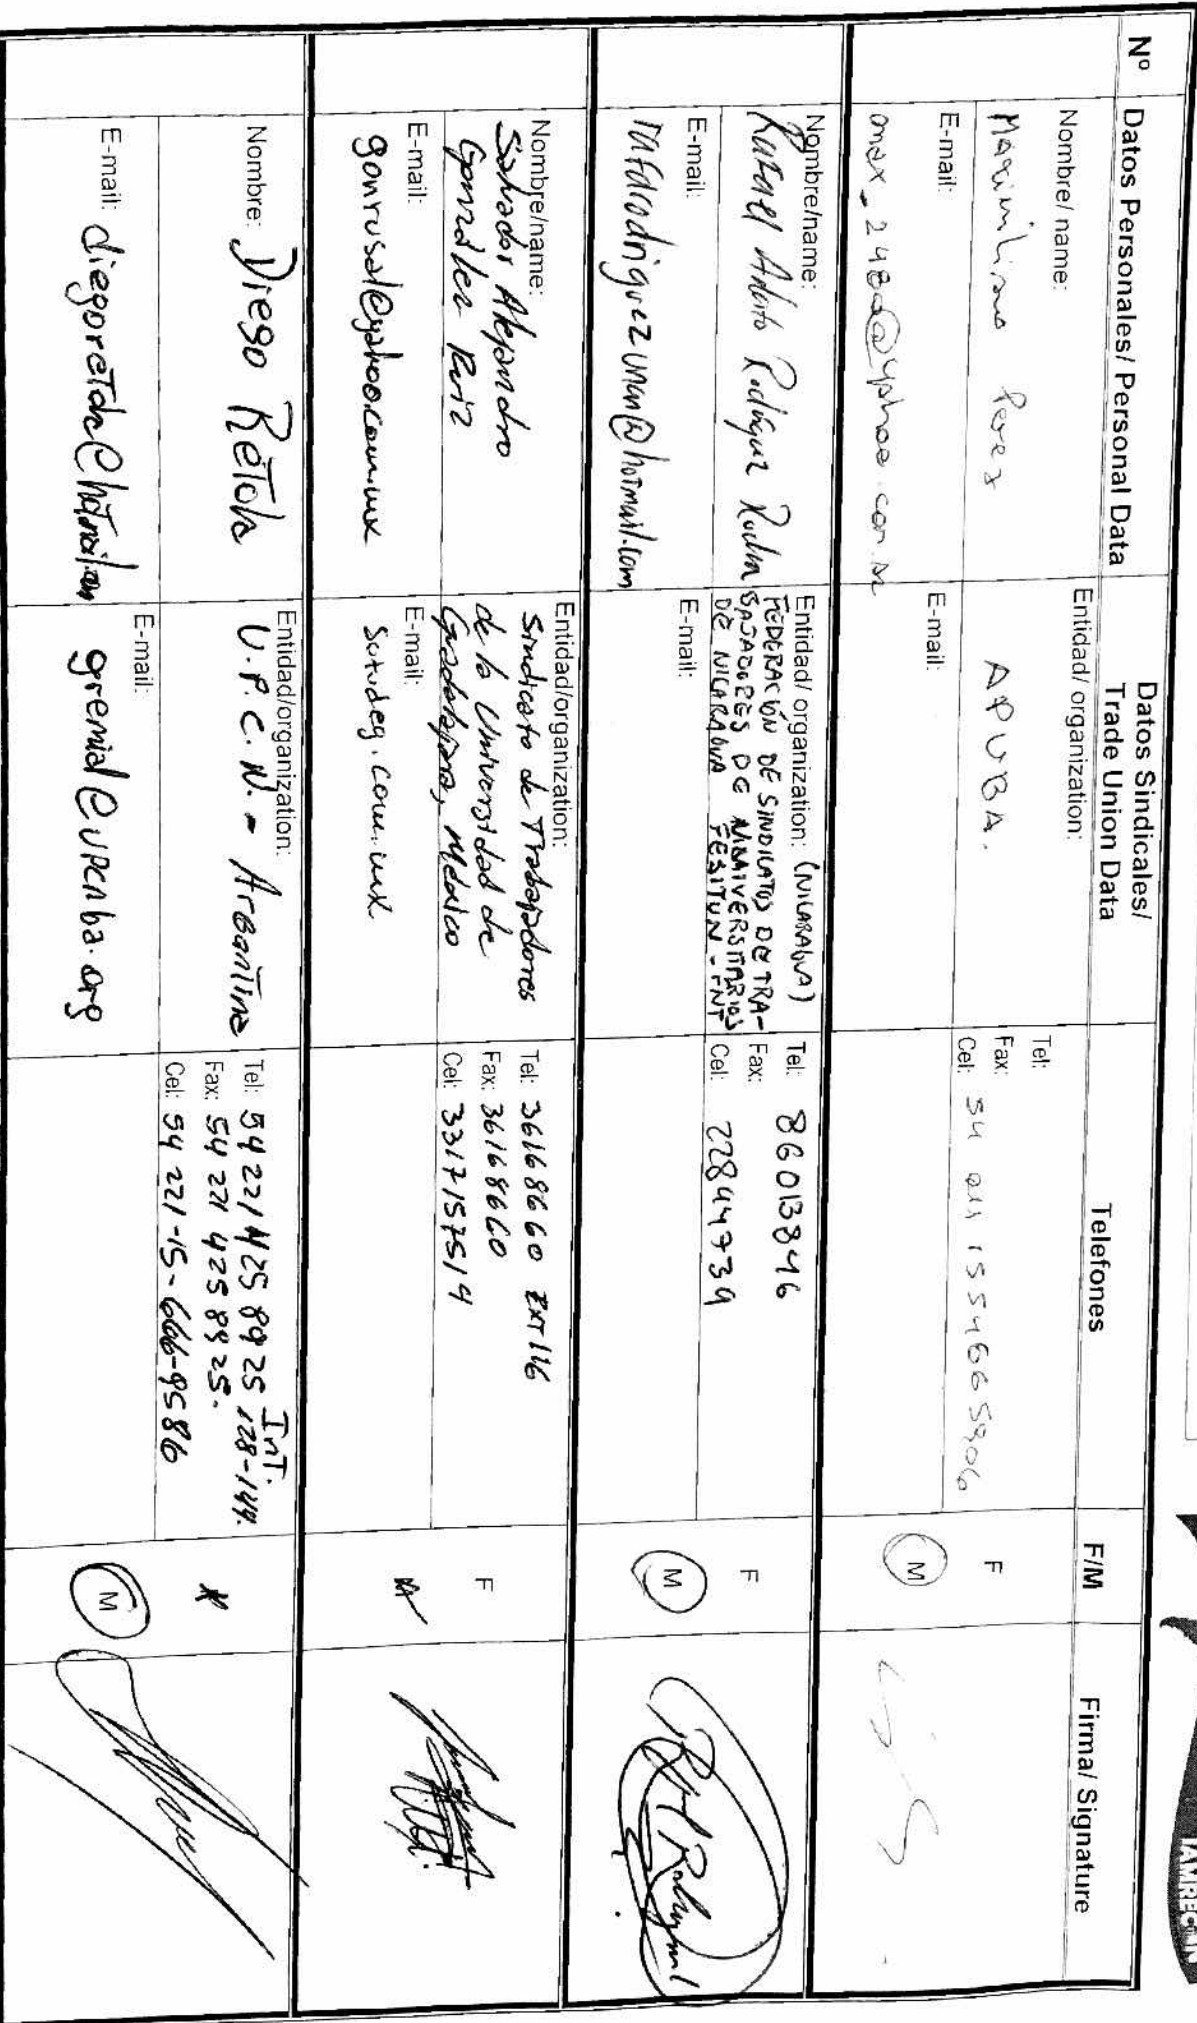 IAMRECON
Nº
Datos Personales/ Personal Data
Datos Sindicales/
Trade Union Data
Telefones
F/M
Firma/ Signature
Nombre/ name:
Maximiliano Perez
E-mail:
Entidad/ organization:
APUBA.
E-mail:
Tel:
Fax:
Cel: 54 011
F
M
Nombre/name:
Rafael Adolfo Rodríguez Rocha
E-mail:
rafarodriguezunan@hotmail.com
Entidad/ organization: (NICARAGUA)
FEDERACIÓN DE SINDICATOS DE TRA-
BAJADORES DE UNIVERSITARIOS
DE NICARAGUA FESITUN - FNT
E-mail:
Tel: 86013846
Fax:
Cel: 22844739
F
M
Nombre/name:
Salvador Alejandro
González Ruiz
E-mail:
gonrusal@yahoo.com.mx
Entidad/organization:
Sindicato de Trabajadores
de la Universidad de
Guadalajara, México
E-mail:
sutudeg.com.mx.
Tel: 36168660 EXT 116
Fax: 36168660
Cel: 3317157514
F
M
Nombre: Diego Rétola
E-mail: diegoretola@hotmail.com
Entidad/organization:
U.P.C.N. - Argentina
E-mail:
gremial@upcnba.org
Int.
Tel: 54 221 425 8925 128-144.
Fax: 54 221 425 8925.
Cel: 54 221-15-666-9586
M